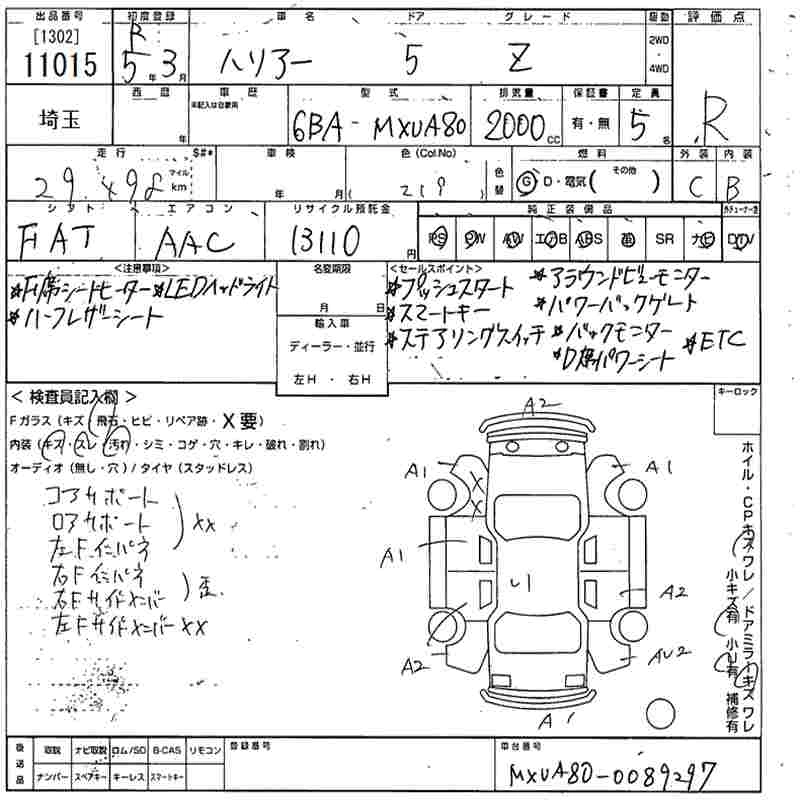 出品番号 初度登録 車名 ドア グレード 駆動 評価点
[1302] R 2WD
11015 5年3月 ハリアー 5 Z ・4WD R
西暦 車歴 型式 排気量 保証書 定員
※記入は自家用
埼玉 年 6BA-MXUA80 2000cc 有・無 5名
走行 $#* 車検 色(Col.No) 燃料 外装 内装
マイル 色替 その他
29 km 年 月 ( 219 ) G D・電気( ) C B
シフト エアコン リサイクル預託金 純正装備品
FAT AAC 13110円 PS PW AW エアB ABS 革 SR ナビ DTV
<注意事項> 名変期限 <セールスポイント>
*F席シートヒーター*LEDヘッドライト
*ハーフレザーシート
月 日
輸入車
ディーラー・並行
左H・右H
*プッシュスタート *アラウンドビューモニター
*スマートキー *パワーバックゲート
*ステアリングスイッチ *バックモニター *ETC
*D席パワーシート
<検査員記入欄> キーロック
Fガラス(キズ・飛石・ヒビ・リペア跡・X要)
内装(キズ・スレ・汚れ・シミ・コゲ・穴・キレ・破れ・割れ)
オーディオ(無し・穴)/タイヤ(スタッドレス)
コアサポート
ロアサポート XX
左Fインパネ
右Fインパネ
右Fサイドメンバー 歪
左Fサイドメンバー XX
A2
A1 X A1
X
A1
U1 A2
A2 AU2
A1
ホイル・CPキズワレ/ドアミラーキズワレ
小キズ有 小U有 補修有
後送品 取説 ナビ取説 ロム/SD B-CAS リモコン 登録番号 車台番号
ナンバー スペアキー キーレス スマートキー MXUA80-0089297